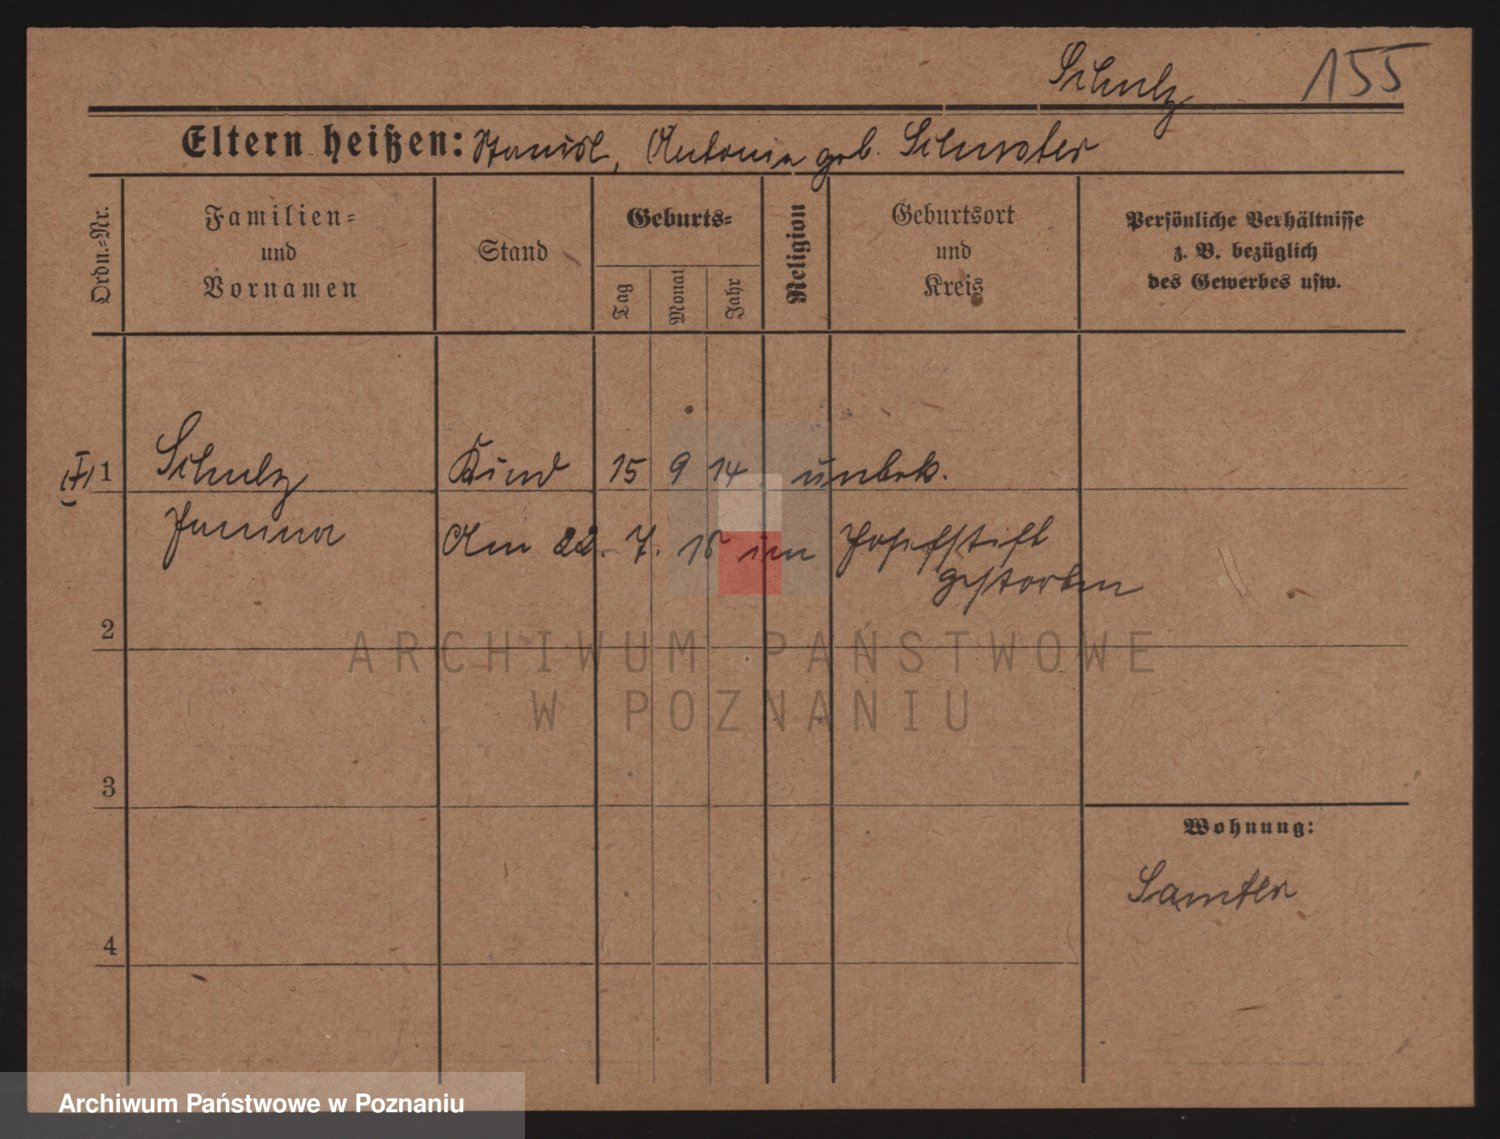 Schulz 155
Eltern heißen: Stanisl, Antonie geb. Schuster
Ordn.=Nr.
Familien=
und
Vornamen
Stand
Geburts=
Tag
Monat
Jahr
Religion
Geburtsort
und
Kreis
Persönliche Verhältnisse
z. B. bezüglich
des Gewerbes usw.
1 Schulz Kind 15 9 14 unbek.
Janina Am 22. 7. 15 im Josefstift
gestorben
2
ARCHIWUM PAŃSTWOWE
W POZNANIU
3
Wohnung:
Samter
4
Archiwum Państwowe w Poznaniu